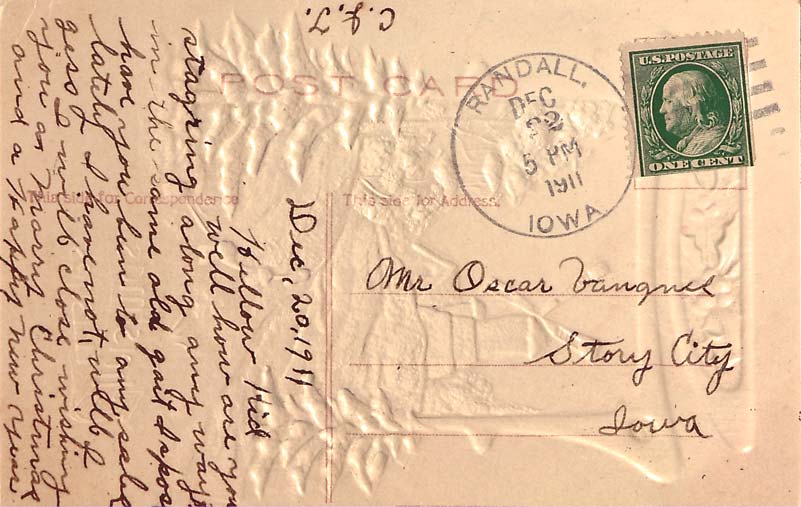 C.J.T.
POST CARD
This side for Correspondence
This side for Address.
RANDALL,
DEC
22
5 PM
1911
IOWA
U.S. POSTAGE
ONE CENT
Mr Oscar Vangnes
Story City
Iowa
Dec, 20, 1911
Hellow Kid
well how are you
stagring along any way
in the same old gait I spose
have you bin to any sale
lately I have not, well I
gess I will close wishing
you a Marry Christmas
and a Happy New Year.